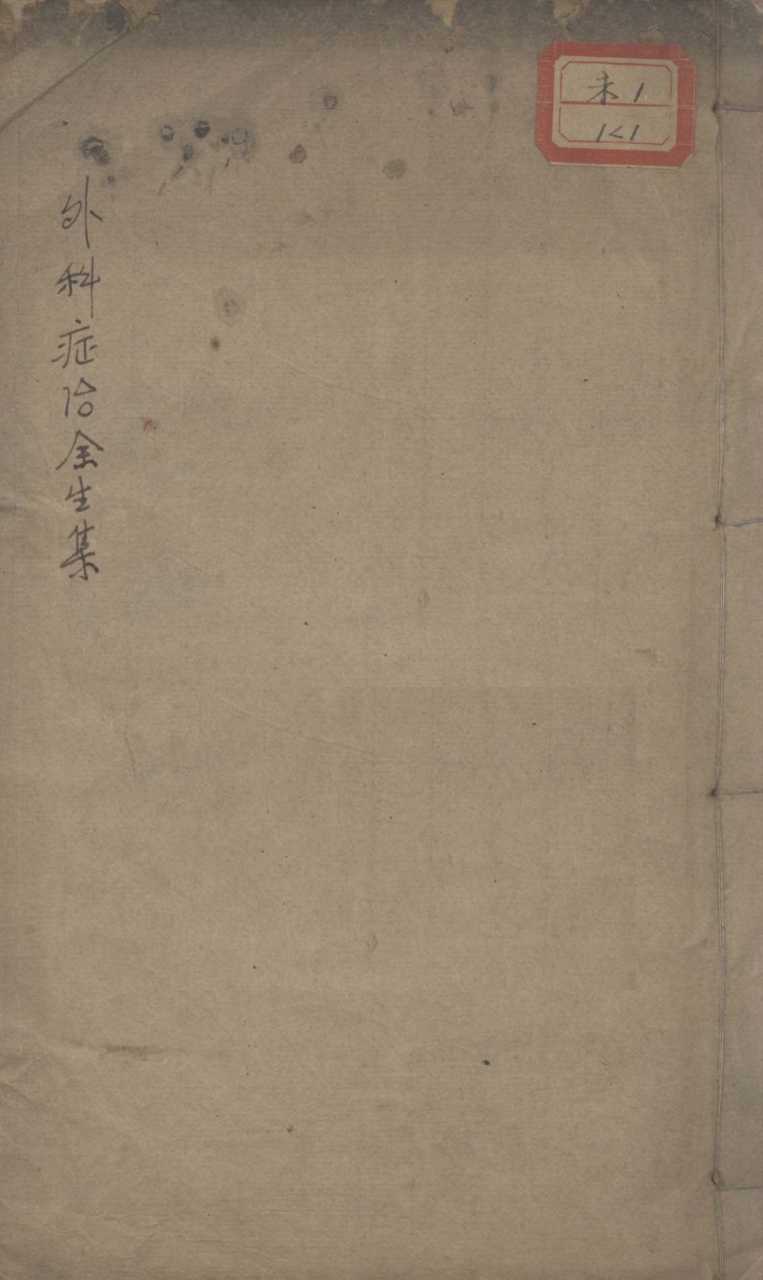 外科症治全生集
未1
1<1